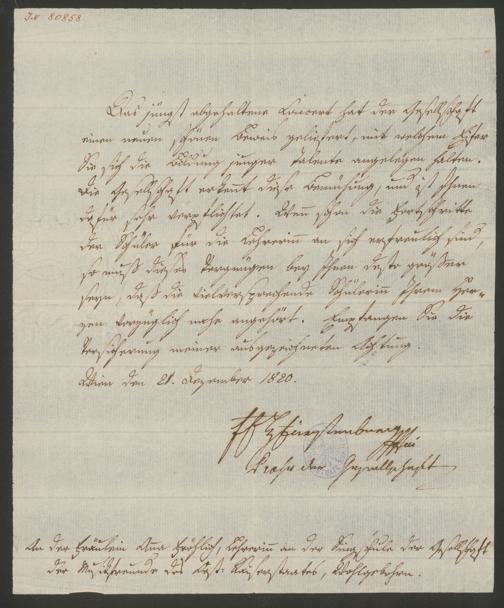 I.N 80858
Das jüngst abgehaltene Concert hat der Gesellschaft
einen neuen schönen Beweis geliefert, mit welchem Eifer
Sie sich die Bildung junger Talente angelegen halten.
Die Gesellschaft erkennt diese Bemühung, und ist Ihnen
dafür sehr verpflichtet. Wenn schon die Fortschritte
der Schüler für die Lehrerinn an sich erfreulich sind,
so muß dieses Vergnügen bey Ihnen desto größer
seyn, daß die vielversprechende Schülerinn Ihrem Her-
zen vorzüglich nahe angehört. Empfangen Sie die
Versicherung meiner ausgezeichneten Achtung.
Wien den 21. Dezember 1820.
Fürstenberg
der Gesellschaft
An der Fräulein Anna Fröhlich, Lehrerinn an der Singschule der Gesellschaft
der Musikfreunde des Öst: Kaiserstaates, Wohlgeboren.